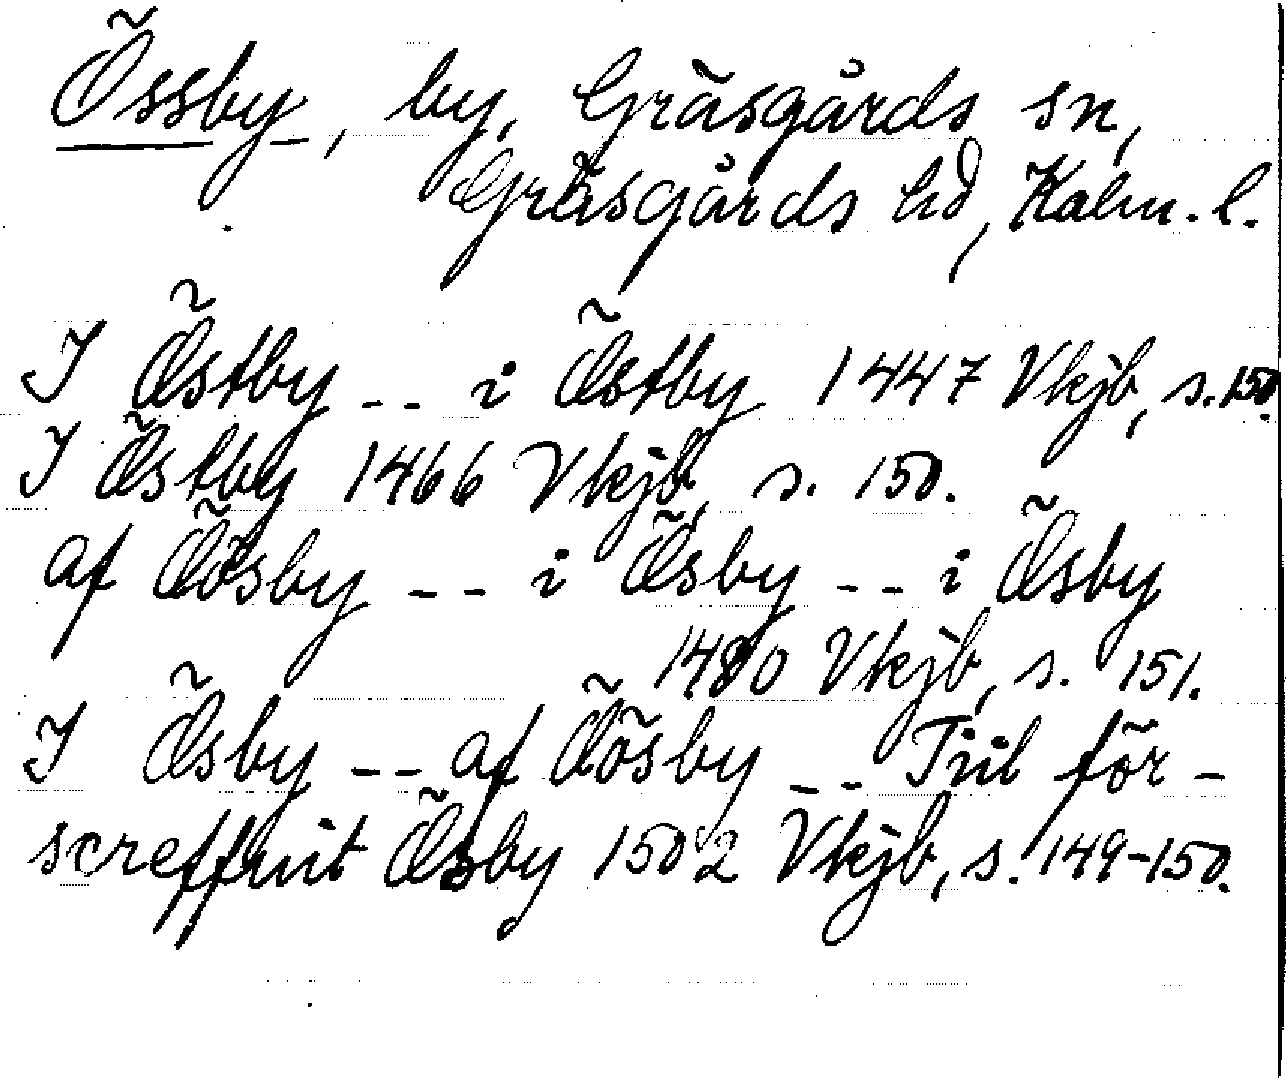 Össby, by, Gräsgårds sn,
Gräsgårds hd, Kalm. l.
I Östby -- i Östby 1447 Vkjb, s. 150.
I Östby 1466 Vkjb, s. 150.
af Öösby -- i Ösby -- i Ösby
1480 Vkjb, s. 151.
I Ösby -- af Öösby -- Tiil för-
screffuit Ösby 1502 Vkjb, s. 149-150.